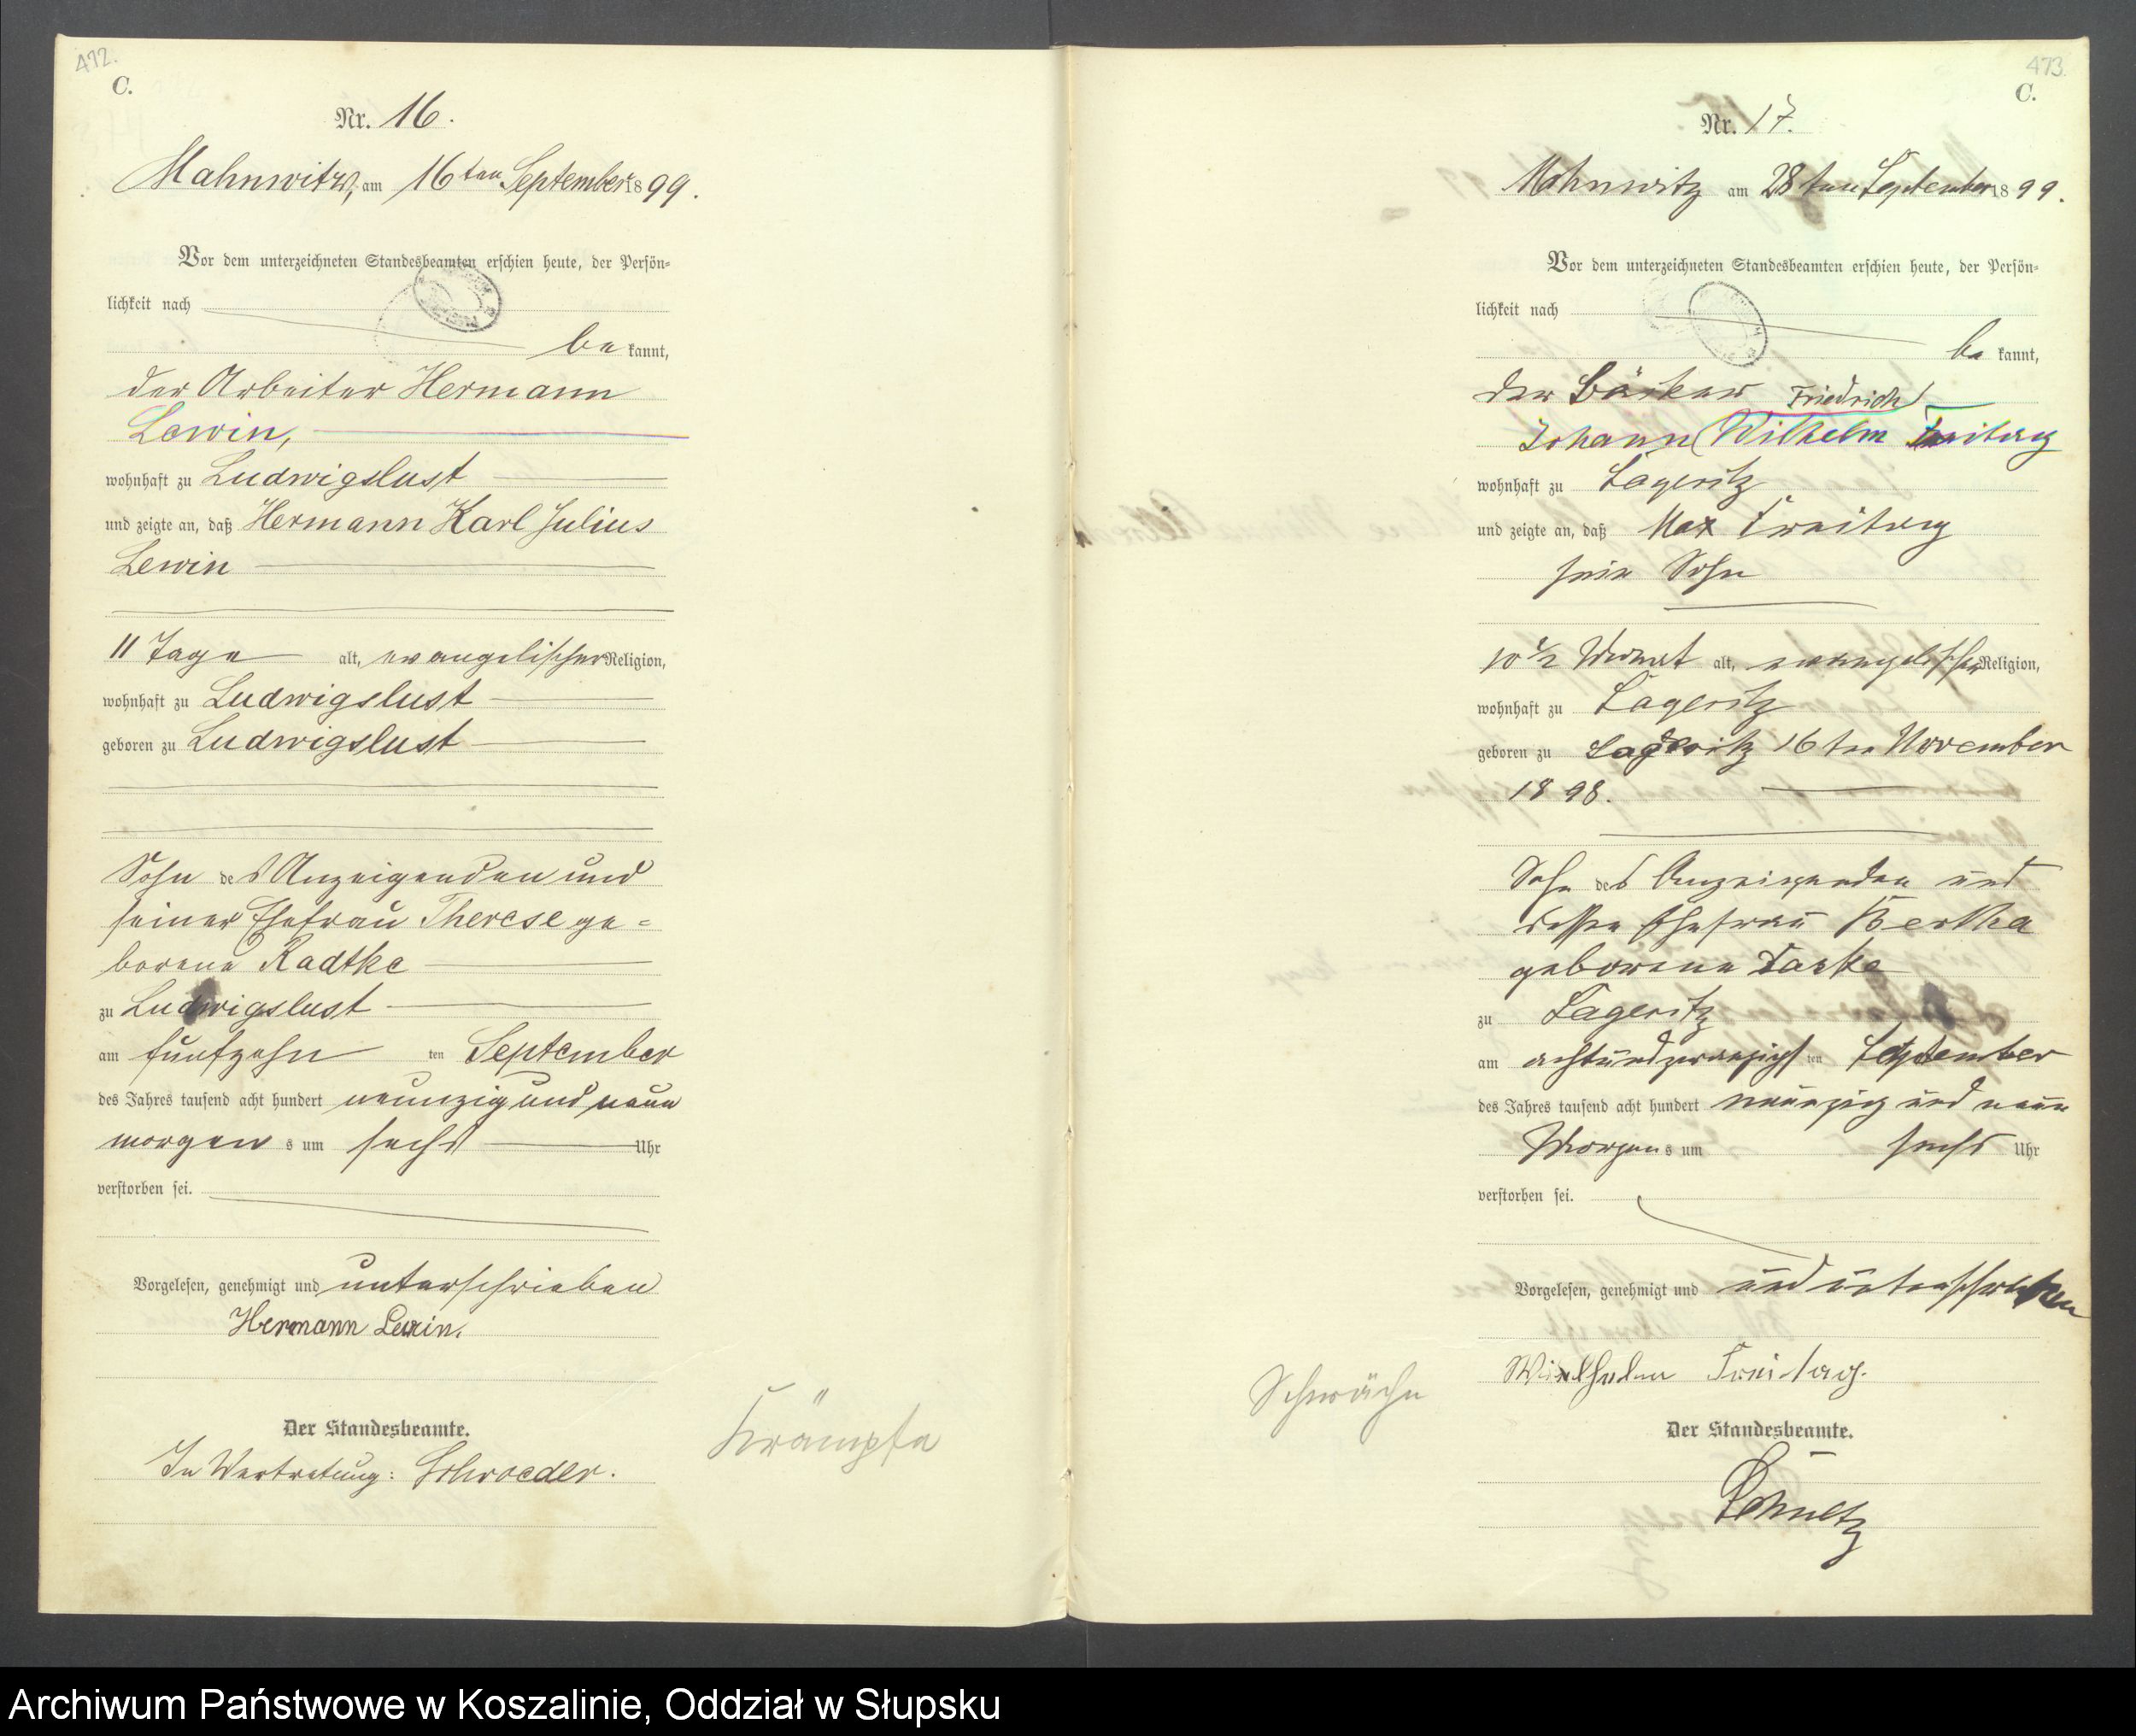 472.
C.
Nr. 16.
Mahnwitz, am 16ten September 1899.
Vor dem unterzeichneten Standesbeamten erschien heute, der Persön-
lichkeit nach
be kannt,
der Arbeiter Hermann
Lewin,
wohnhaft zu Ludwigslust
und zeigte an, daß Hermann Karl Julius
Lewin
11 Tage alt, evangelischer Religion,
wohnhaft zu Ludwigslust
geboren zu Ludwigslust
Sohn des Anzeigenden und
seiner Ehefrau Therese ge=
borene Radtke
zu Ludwigslust
am fünfzehn ten September
des Jahres tausend acht hundert neunzig und neun
morgen s um sechs Uhr
verstorben sei.
Vorgelesen, genehmigt und unterschrieben
Hermann Lewin.
Der Standesbeamte.
In Vertretung: Schroeder.
Krämpfe
473.
C.
Nr. 17.
Mahnwitz am 28ten September 1899.
Vor dem unterzeichneten Standesbeamten erschien heute, der Persön-
lichkeit nach
be kannt,
der Bäcker Friedrich
Johann (Wilhelm Freitag
wohnhaft zu Lageritz
und zeigte an, daß Max Freitag
sein Sohn
10 1/2 Monat alt, evangelischer Religion,
wohnhaft zu Lageritz
geboren zu Lageritz 16ten November
1898.
Sohn des Anzeigenden und
dessen Ehefrau Bertha
geborene
zu Lageritz
am achtundzwanzigs ten September
des Jahres tausend acht hundert neunzig und neun
Morgen s um sechs Uhr
verstorben sei.
Vorgelesen, genehmigt und und unterschrieben
Wilhelm Freitag.
Der Standesbeamte.
Schultz
Schwäche
Archiwum Państwowe w Koszalinie, Oddział w Słupsku